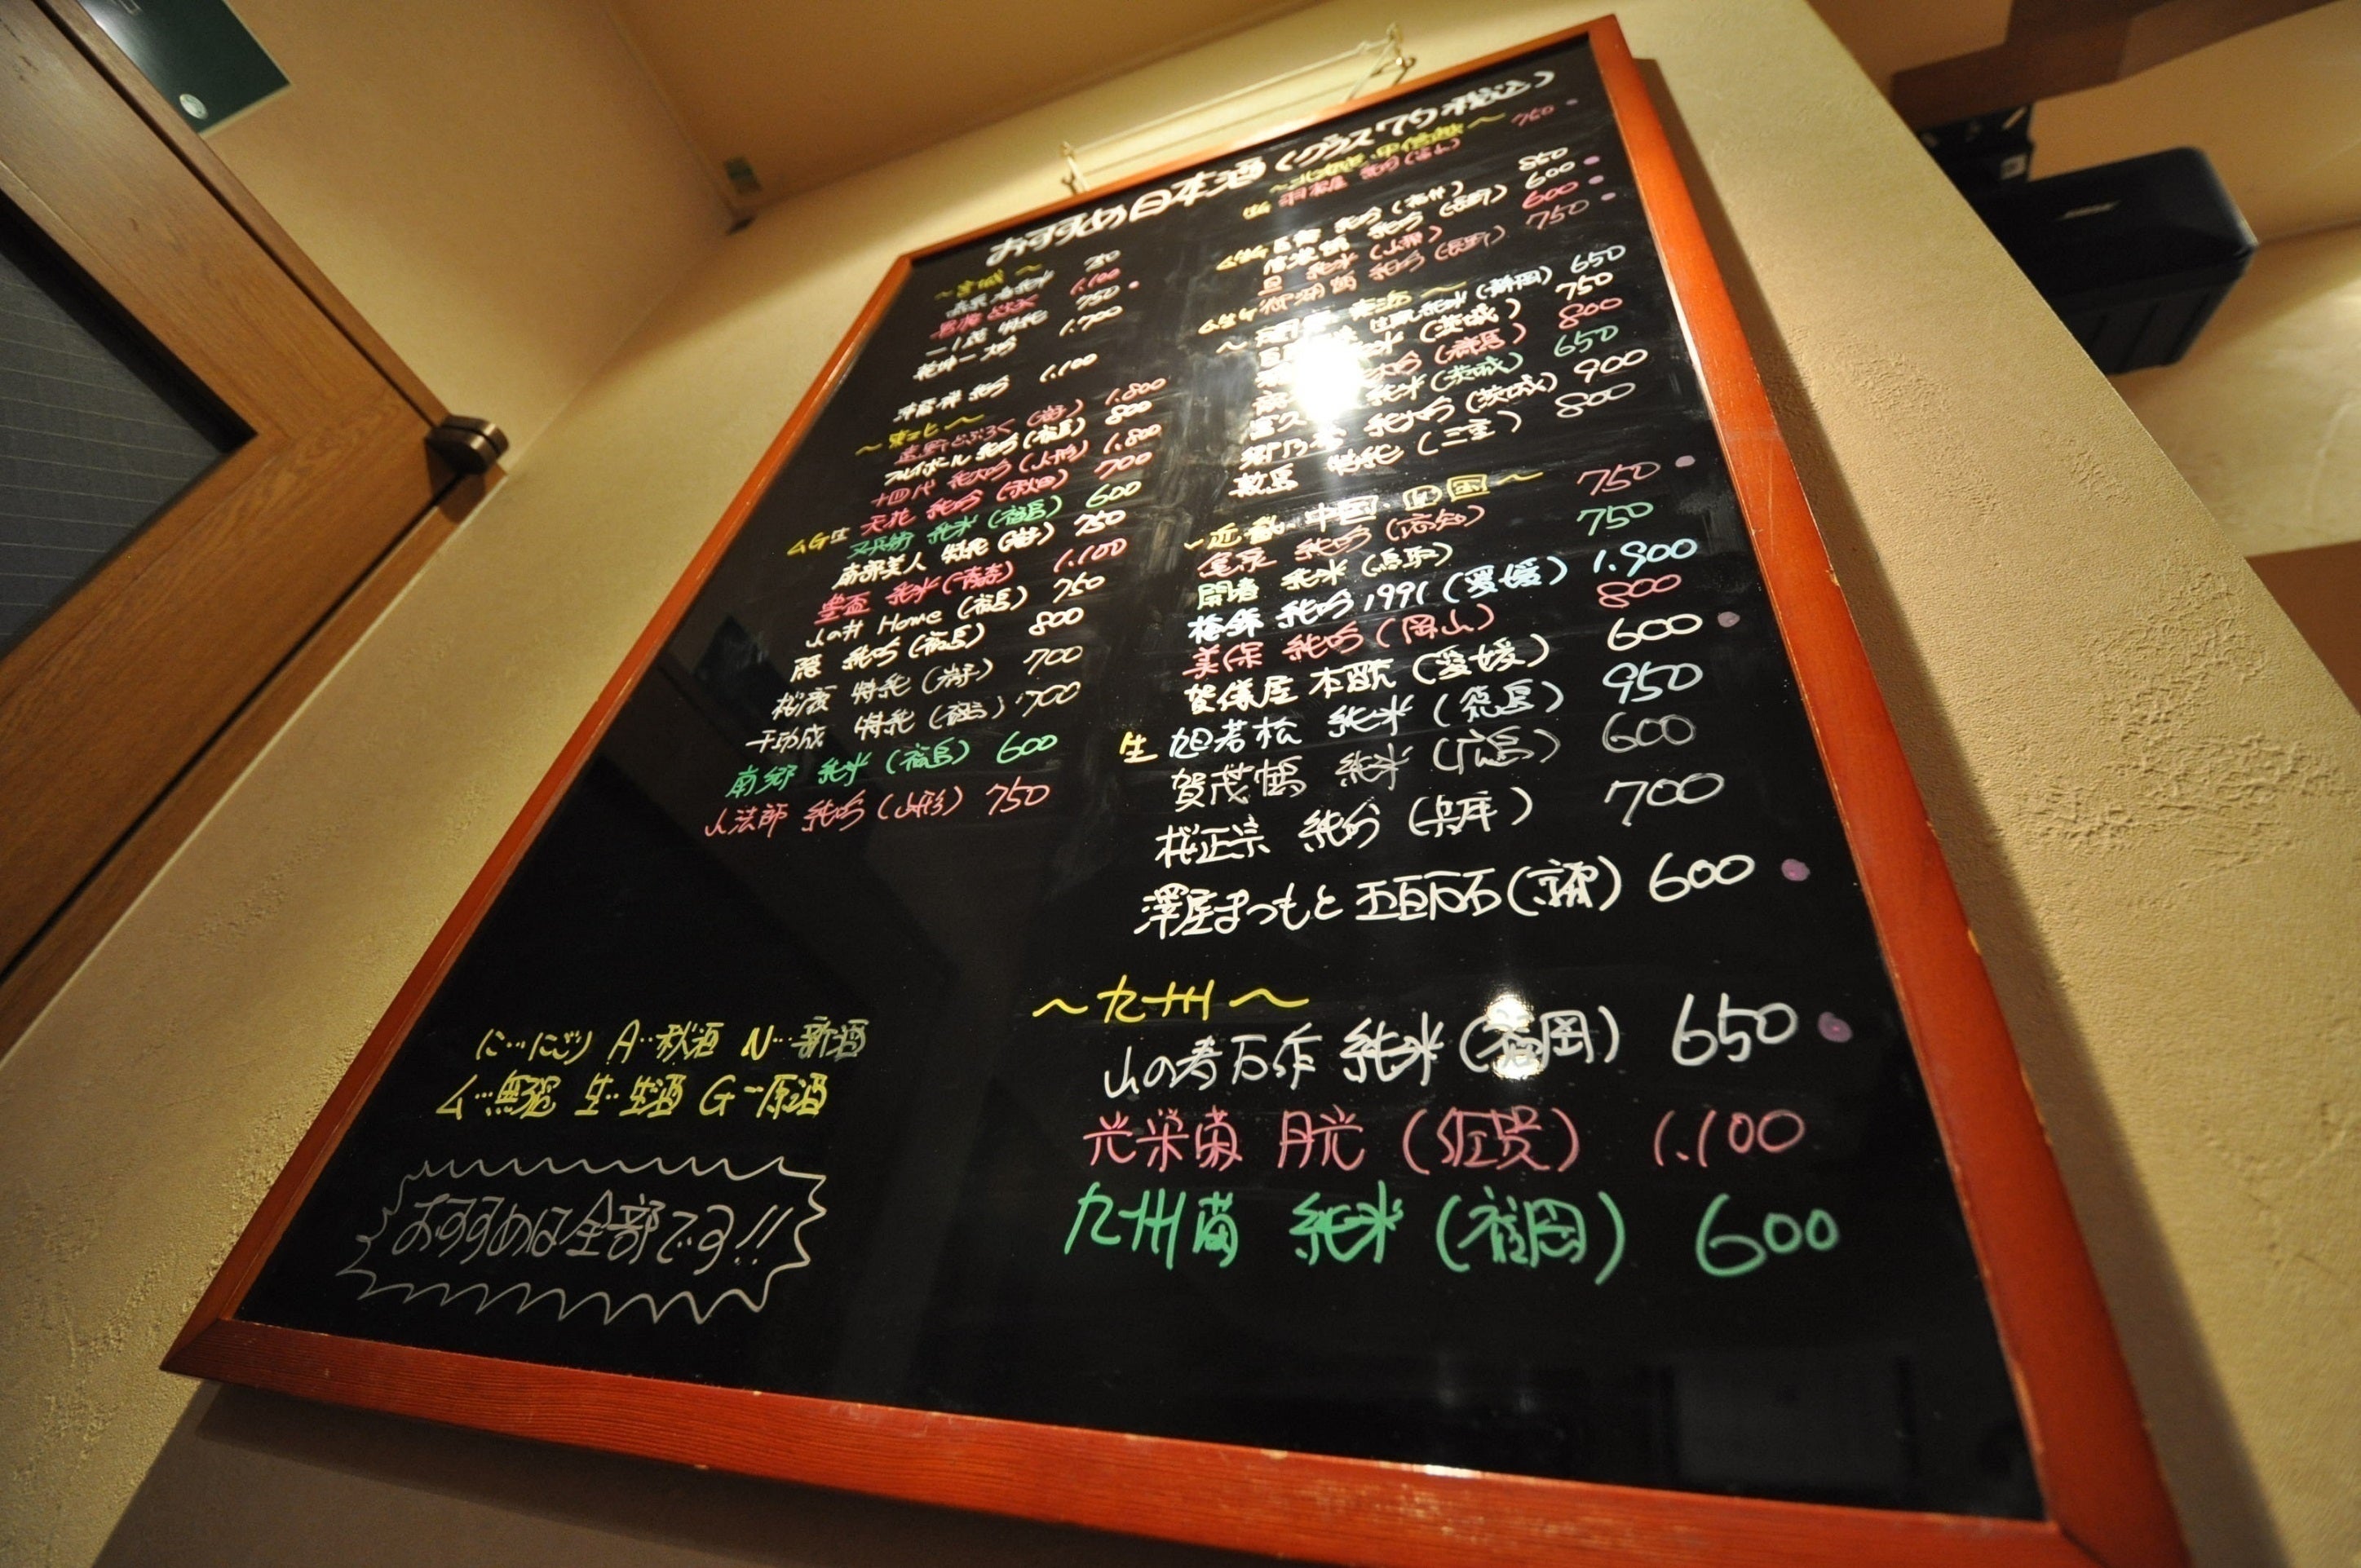 おすすめ日本酒(グラス7勺税込)
~宮城~
750
1.100
一ノ蔵 特純 750
乾坤一 大吟 1.700
純吟 1.100
~東北~
遠野どぶろく(岩手) 1.800
純吟(福島) 800
十四代 純大吟(山形) 1.800
ムG生 天花 純吟(秋田) 700
又兵衛 純米(福島) 600
南部美人 特純(岩手) 750
豊盃 純米(青森) 1.100
山の井 Home(福島) 750
純吟(福島) 800
桜顔 特純(岩手) 700
千功成 特純(福島) 700
南郷 純米(福島) 600
山法師 純吟(山形) 750
に…にごり A…秋酒 N…新酒
ム…無濾 生…生酒 G…原酒
おすすめは全部です!!
~北陸、甲信越~
羽根屋 純吟(富山) 750
純吟(福井) 850
純吟(長野) 600
旦 純米(山梨) 600
ム生G 御湖鶴 純吟(長野) 750
純米(静岡) 650
(茨城) 750
大吟(群馬) 800
純米(茨城) 650
郷乃誉 純大吟(茨城) 900
特純(三重) 800
~近畿、中国、四国~
亀泉 純吟(高知) 750
純米(鳥取) 750
梅錦 純吟1991(愛媛) 1.900
美保 純吟(岡山) 800
賀儀屋 本醸(愛媛) 600
生 旭若松 純米(徳島) 950
賀茂鶴 純米(広島) 600
桜正宗 純吟(兵庫) 700
澤屋まつもと 五百万石(京都) 600
~九州~
山の寿万作 純米(福岡) 650
光栄菊 月光(佐賀) 1.100
九州菊 純米(福岡) 600